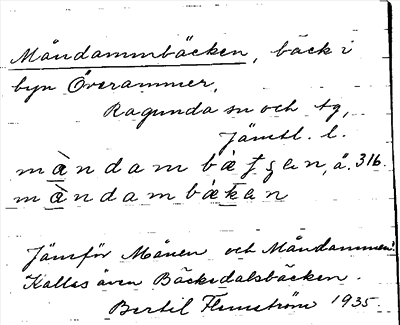 Måndammbäcken, bäck i
byn Överammer,
Ragunda sn och tg,
Jämtl. l.
måndambæ̀ʈʂen, å. 316.
måndambækan
Jämför Månen och Måndammen.
Kallas även Bäckedalsbäcken.
Bertil Flemström 1935.